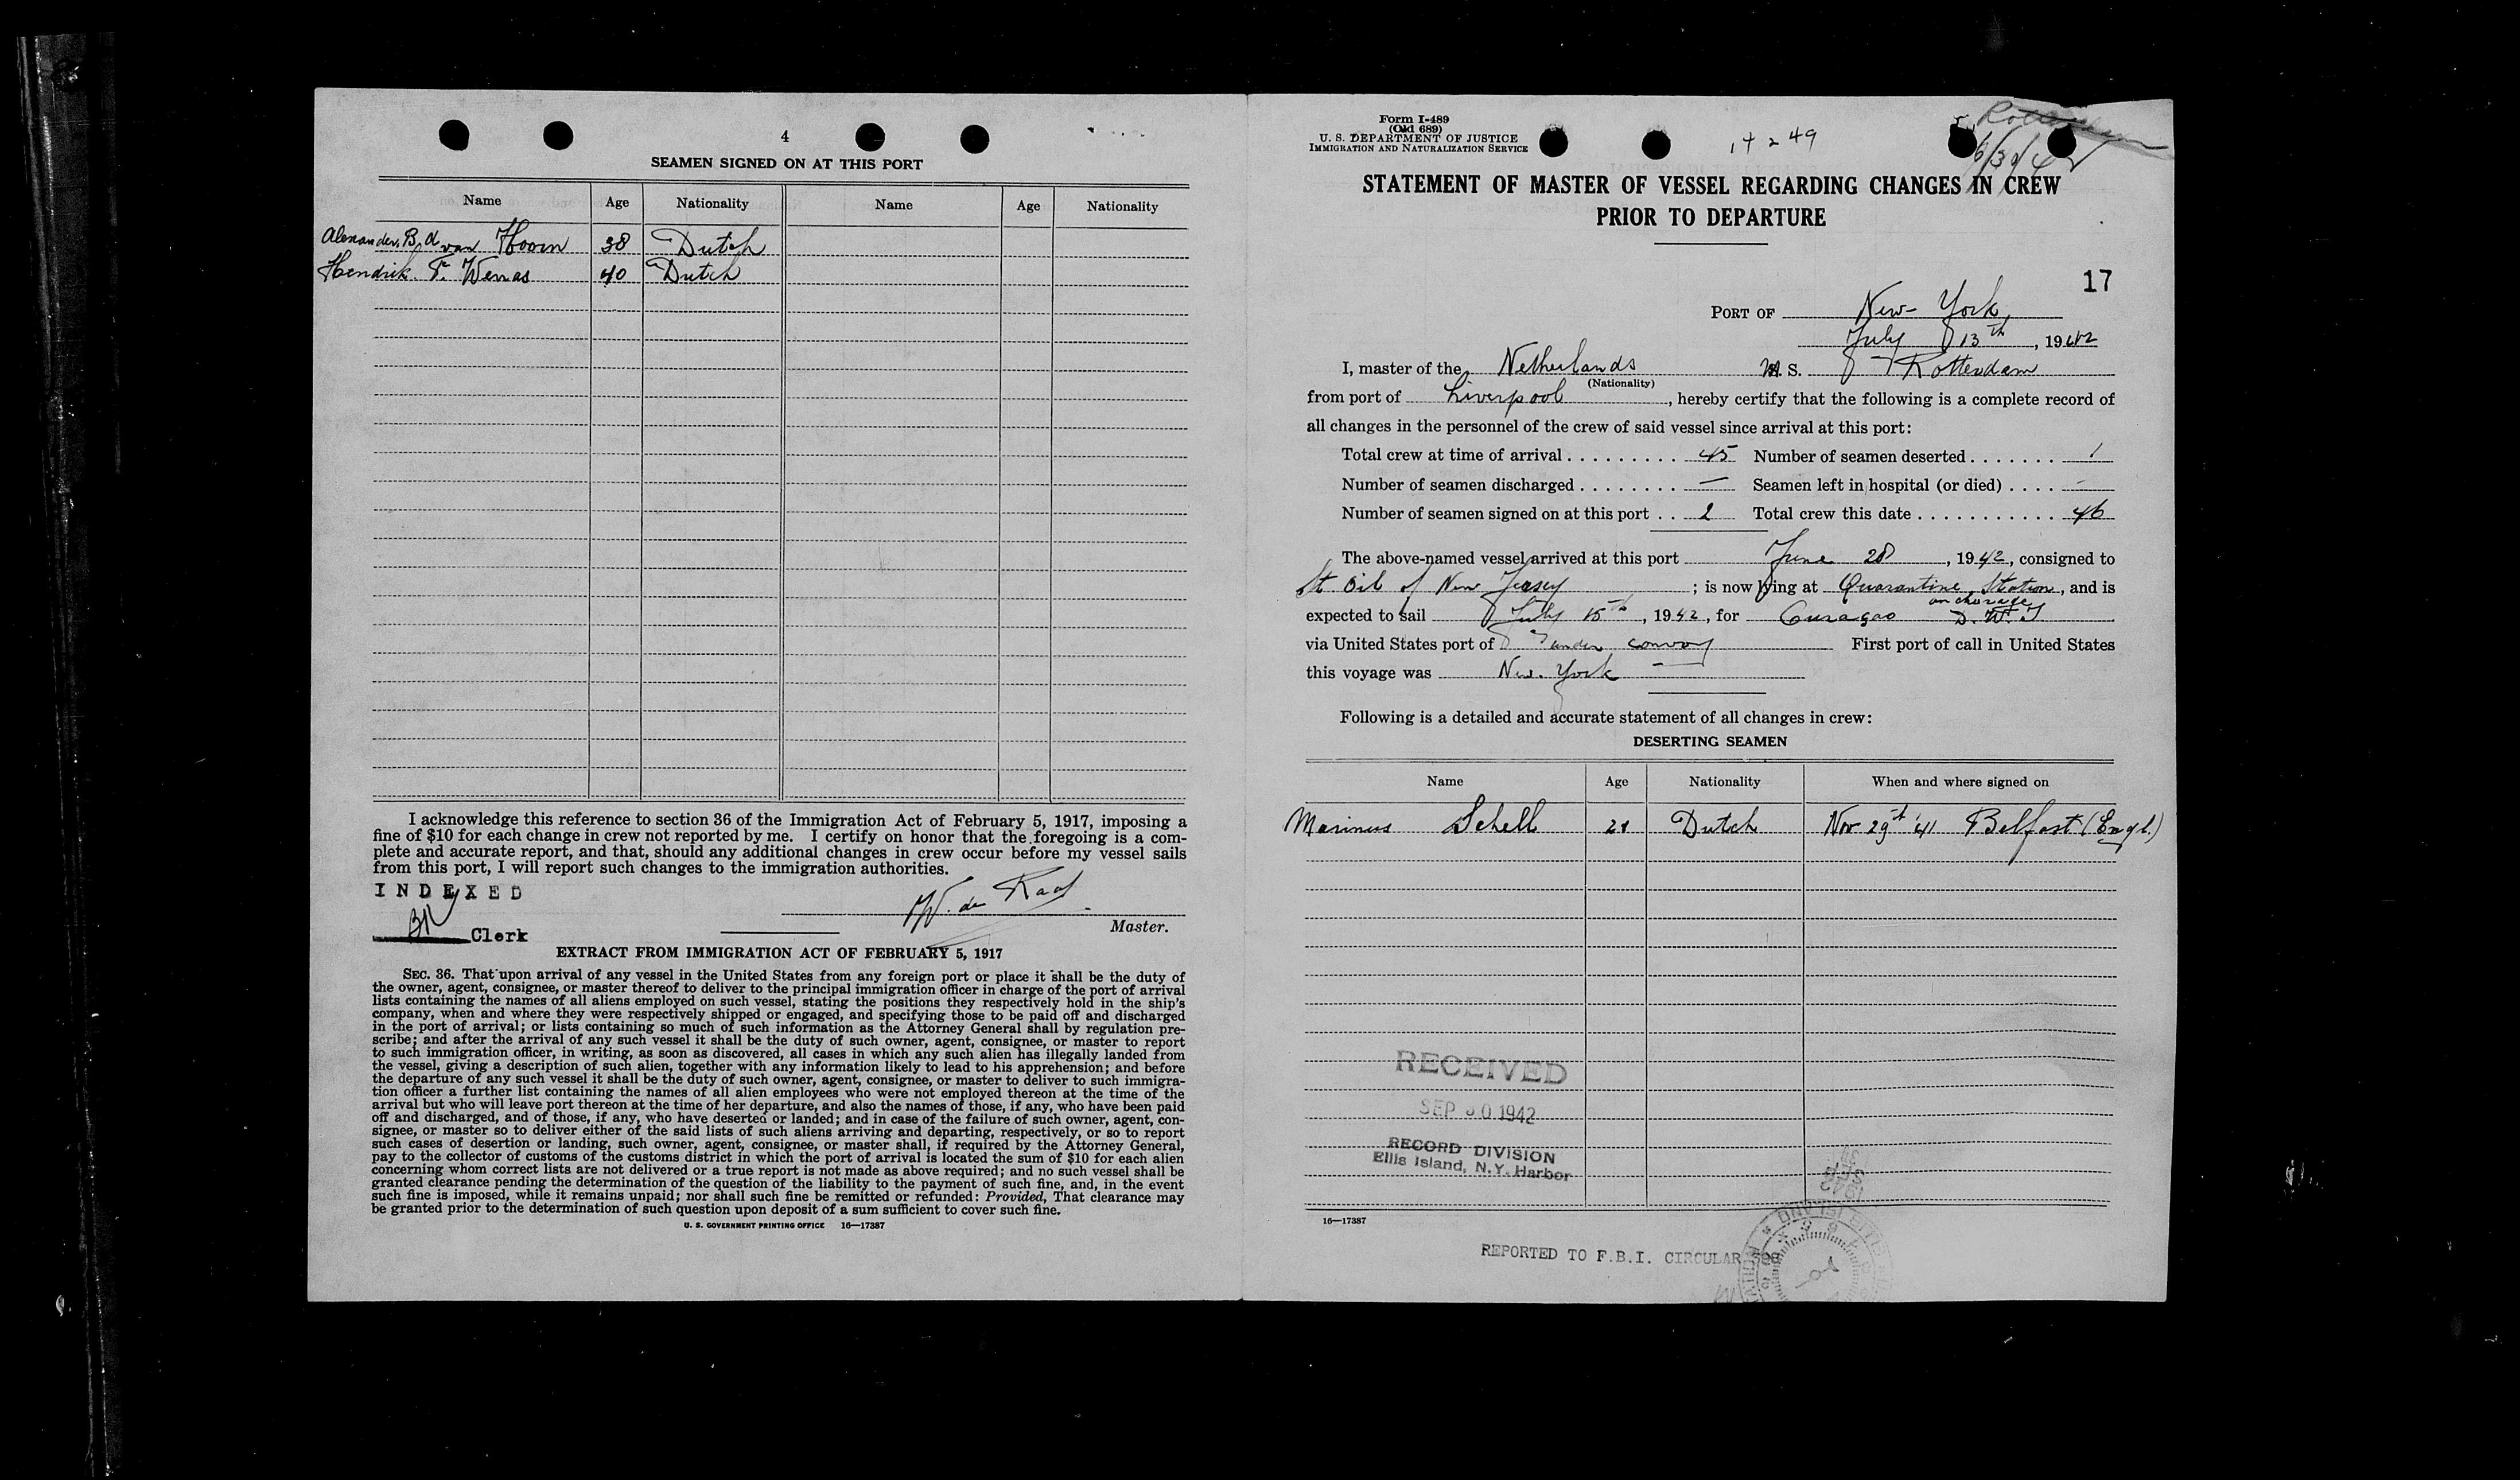 4
SEAMEN SIGNED ON AT THIS PORT
Name Age Nationality Name Age Nationality
Alexander, B, d van Hoorn 38 Dutch
Hendrik F. Werras 40 Dutch
I acknowledge this reference to section 36 of the Immigration Act of February 5, 1917, imposing a
fine of $10 for each change in crew not reported by me. I certify on honor that the foregoing is a com-
plete and accurate report, and that, should any additional changes in crew occur before my vessel sails
from this port, I will report such changes to the immigration authorities.
INDEXED
W. de Raaf
Master.
Clerk
EXTRACT FROM IMMIGRATION ACT OF FEBRUARY 5, 1917
SEC. 36. That upon arrival of any vessel in the United States from any foreign port or place it shall be the duty of
the owner, agent, consignee, or master thereof to deliver to the principal immigration officer in charge of the port of arrival
lists containing the names of all aliens employed on such vessel, stating the positions they respectively hold in the ship's
company, when and where they were respectively shipped or engaged, and specifying those to be paid off and discharged
in the port of arrival; or lists containing so much of such information as the Attorney General shall by regulation pre-
scribe; and after the arrival of any such vessel it shall be the duty of such owner, agent, consignee, or master to report
to such immigration officer, in writing, as soon as discovered, all cases in which any such alien has illegally landed from
the vessel, giving a description of such alien, together with any information likely to lead to his apprehension; and before
the departure of any such vessel it shall be the duty of such owner, agent, consignee, or master to deliver to such immigra-
tion officer a further list containing the names of all alien employees who were not employed thereon at the time of the
arrival but who will leave port thereon at the time of her departure, and also the names of those, if any, who have been paid
off and discharged, and of those, if any, who have deserted or landed; and in case of the failure of such owner, agent, con-
signee, or master so to deliver either of the said lists of such aliens arriving and departing, respectively, or so to report
such cases of desertion or landing, such owner, agent, consignee, or master shall, if required by the Attorney General,
pay to the collector of customs of the customs district in which the port of arrival is located the sum of $10 for each alien
concerning whom correct lists are not delivered or a true report is not made as above required; and no such vessel shall be
granted clearance pending the determination of the question of the liability to the payment of such fine, and, in the event
such fine is imposed, while it remains unpaid; nor shall such fine be remitted or refunded: Provided, That clearance may
be granted prior to the determination of such question upon deposit of a sum sufficient to cover such fine.
U. S. GOVERNMENT PRINTING OFFICE 16—17387
Form I-489
(Old 689)
U. S. DEPARTMENT OF JUSTICE
IMMIGRATION AND NATURALIZATION SERVICE
Rotterdam
6/30/42
STATEMENT OF MASTER OF VESSEL REGARDING CHANGES IN CREW
PRIOR TO DEPARTURE
17
PORT OF New-York
July 13th, 1942
I, master of the Netherlands M. S. "Rotterdam
(Nationality)
from port of Liverpool, hereby certify that the following is a complete record of
all changes in the personnel of the crew of said vessel since arrival at this port:
Total crew at time of arrival . . . . . . . . . 45 Number of seamen deserted . . . . . . . 1
Number of seamen discharged . . . . . . . . — Seamen left in hospital (or died) . . . . -
Number of seamen signed on at this port . . 2 Total crew this date . . . . . . . . . . . 46
The above-named vessel arrived at this port June 28, 1942, consigned to
St. Oil of New Jersey; is now lying at Quarantine Station, and is
anchorage
expected to sail July 15th, 1942, for Curaçao D.W.I
via United States port of under convoy First port of call in United States
this voyage was New. York —
Following is a detailed and accurate statement of all changes in crew:
DESERTING SEAMEN
Name Age Nationality When and where signed on
Marinus Schell 21 Dutch Nov 29th '41 Belfast (Engl.)
RECEIVED
SEP 30 1942
RECORD DIVISION
Ellis Island, N.Y. Harbor
16—17387
REPORTED TO F.B.I. CIRCULAR